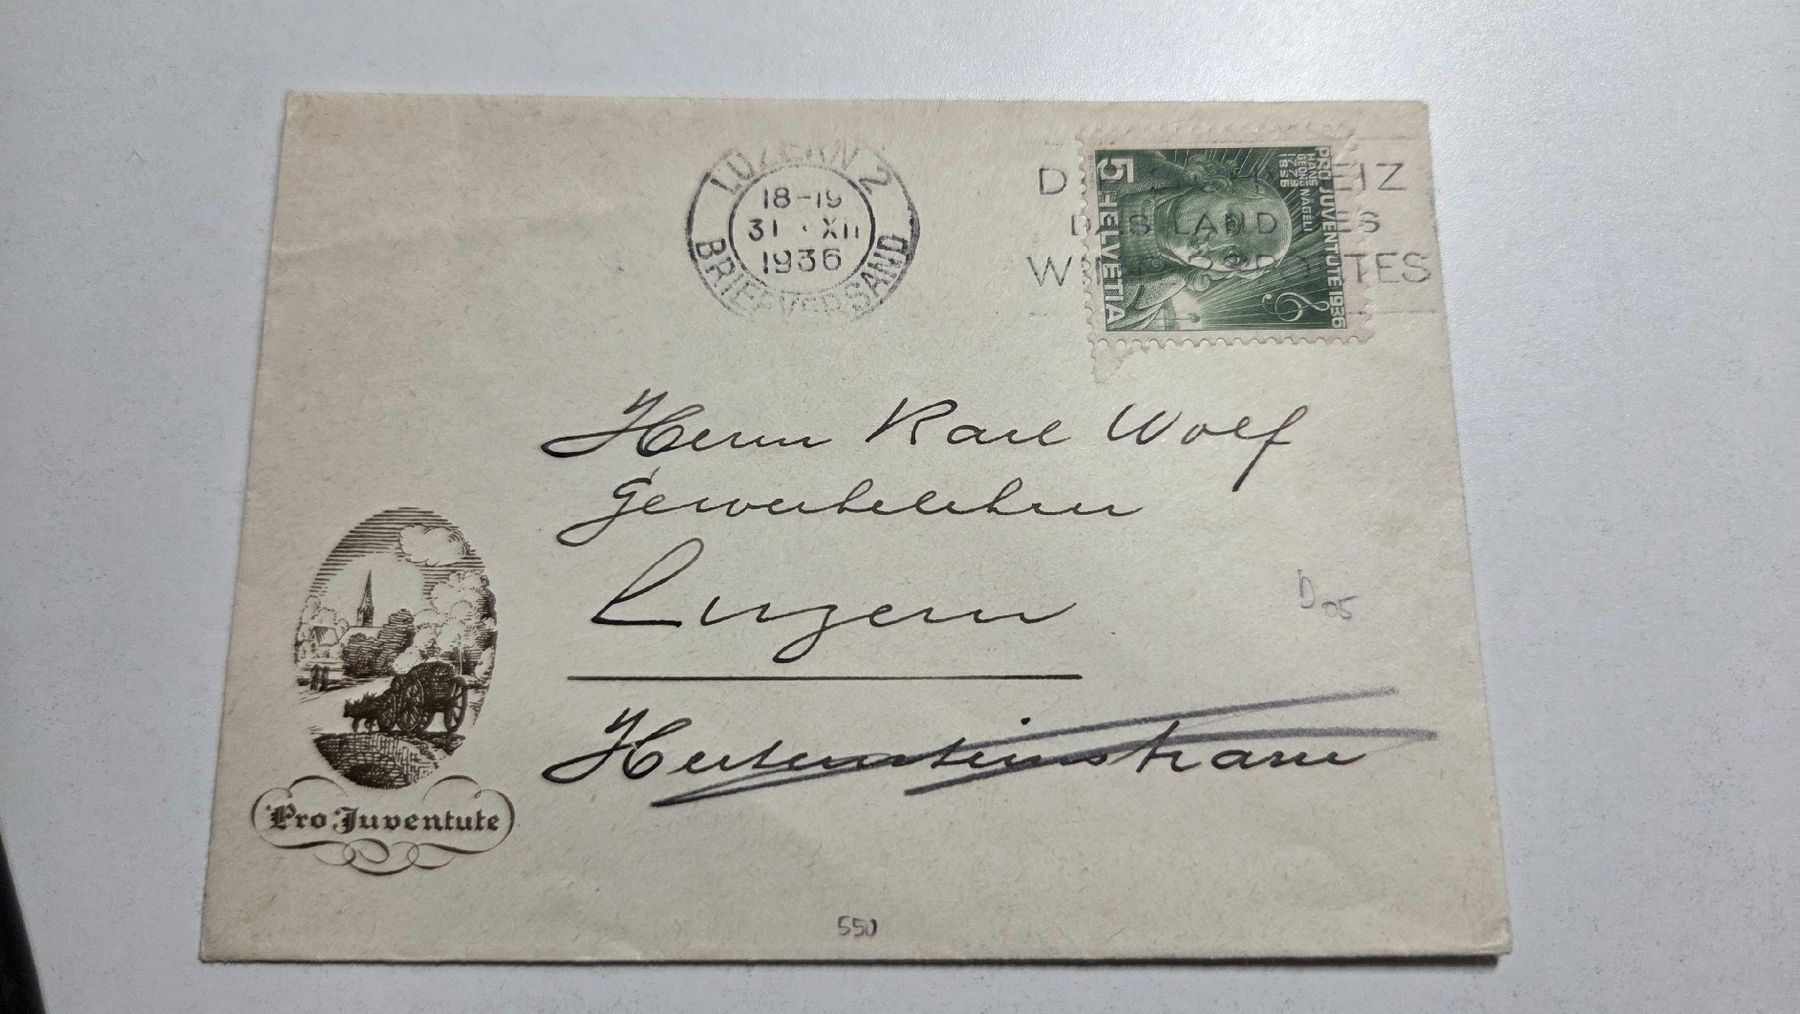 LUZERN 2
18-19
31. XII
1936
BRIEFVERSAND
DIE SCHWEIZ
DAS LAND DES
WINTERSPORTES
5
HELVETIA
PRO JUVENTUTE 1936
HANS
GEORG NÄGELI
1773
1836
Herrn Karl Wolf
Gewerbelehrer
Luzern
Hertensteinstrasse
D05
Pro Juventute
550